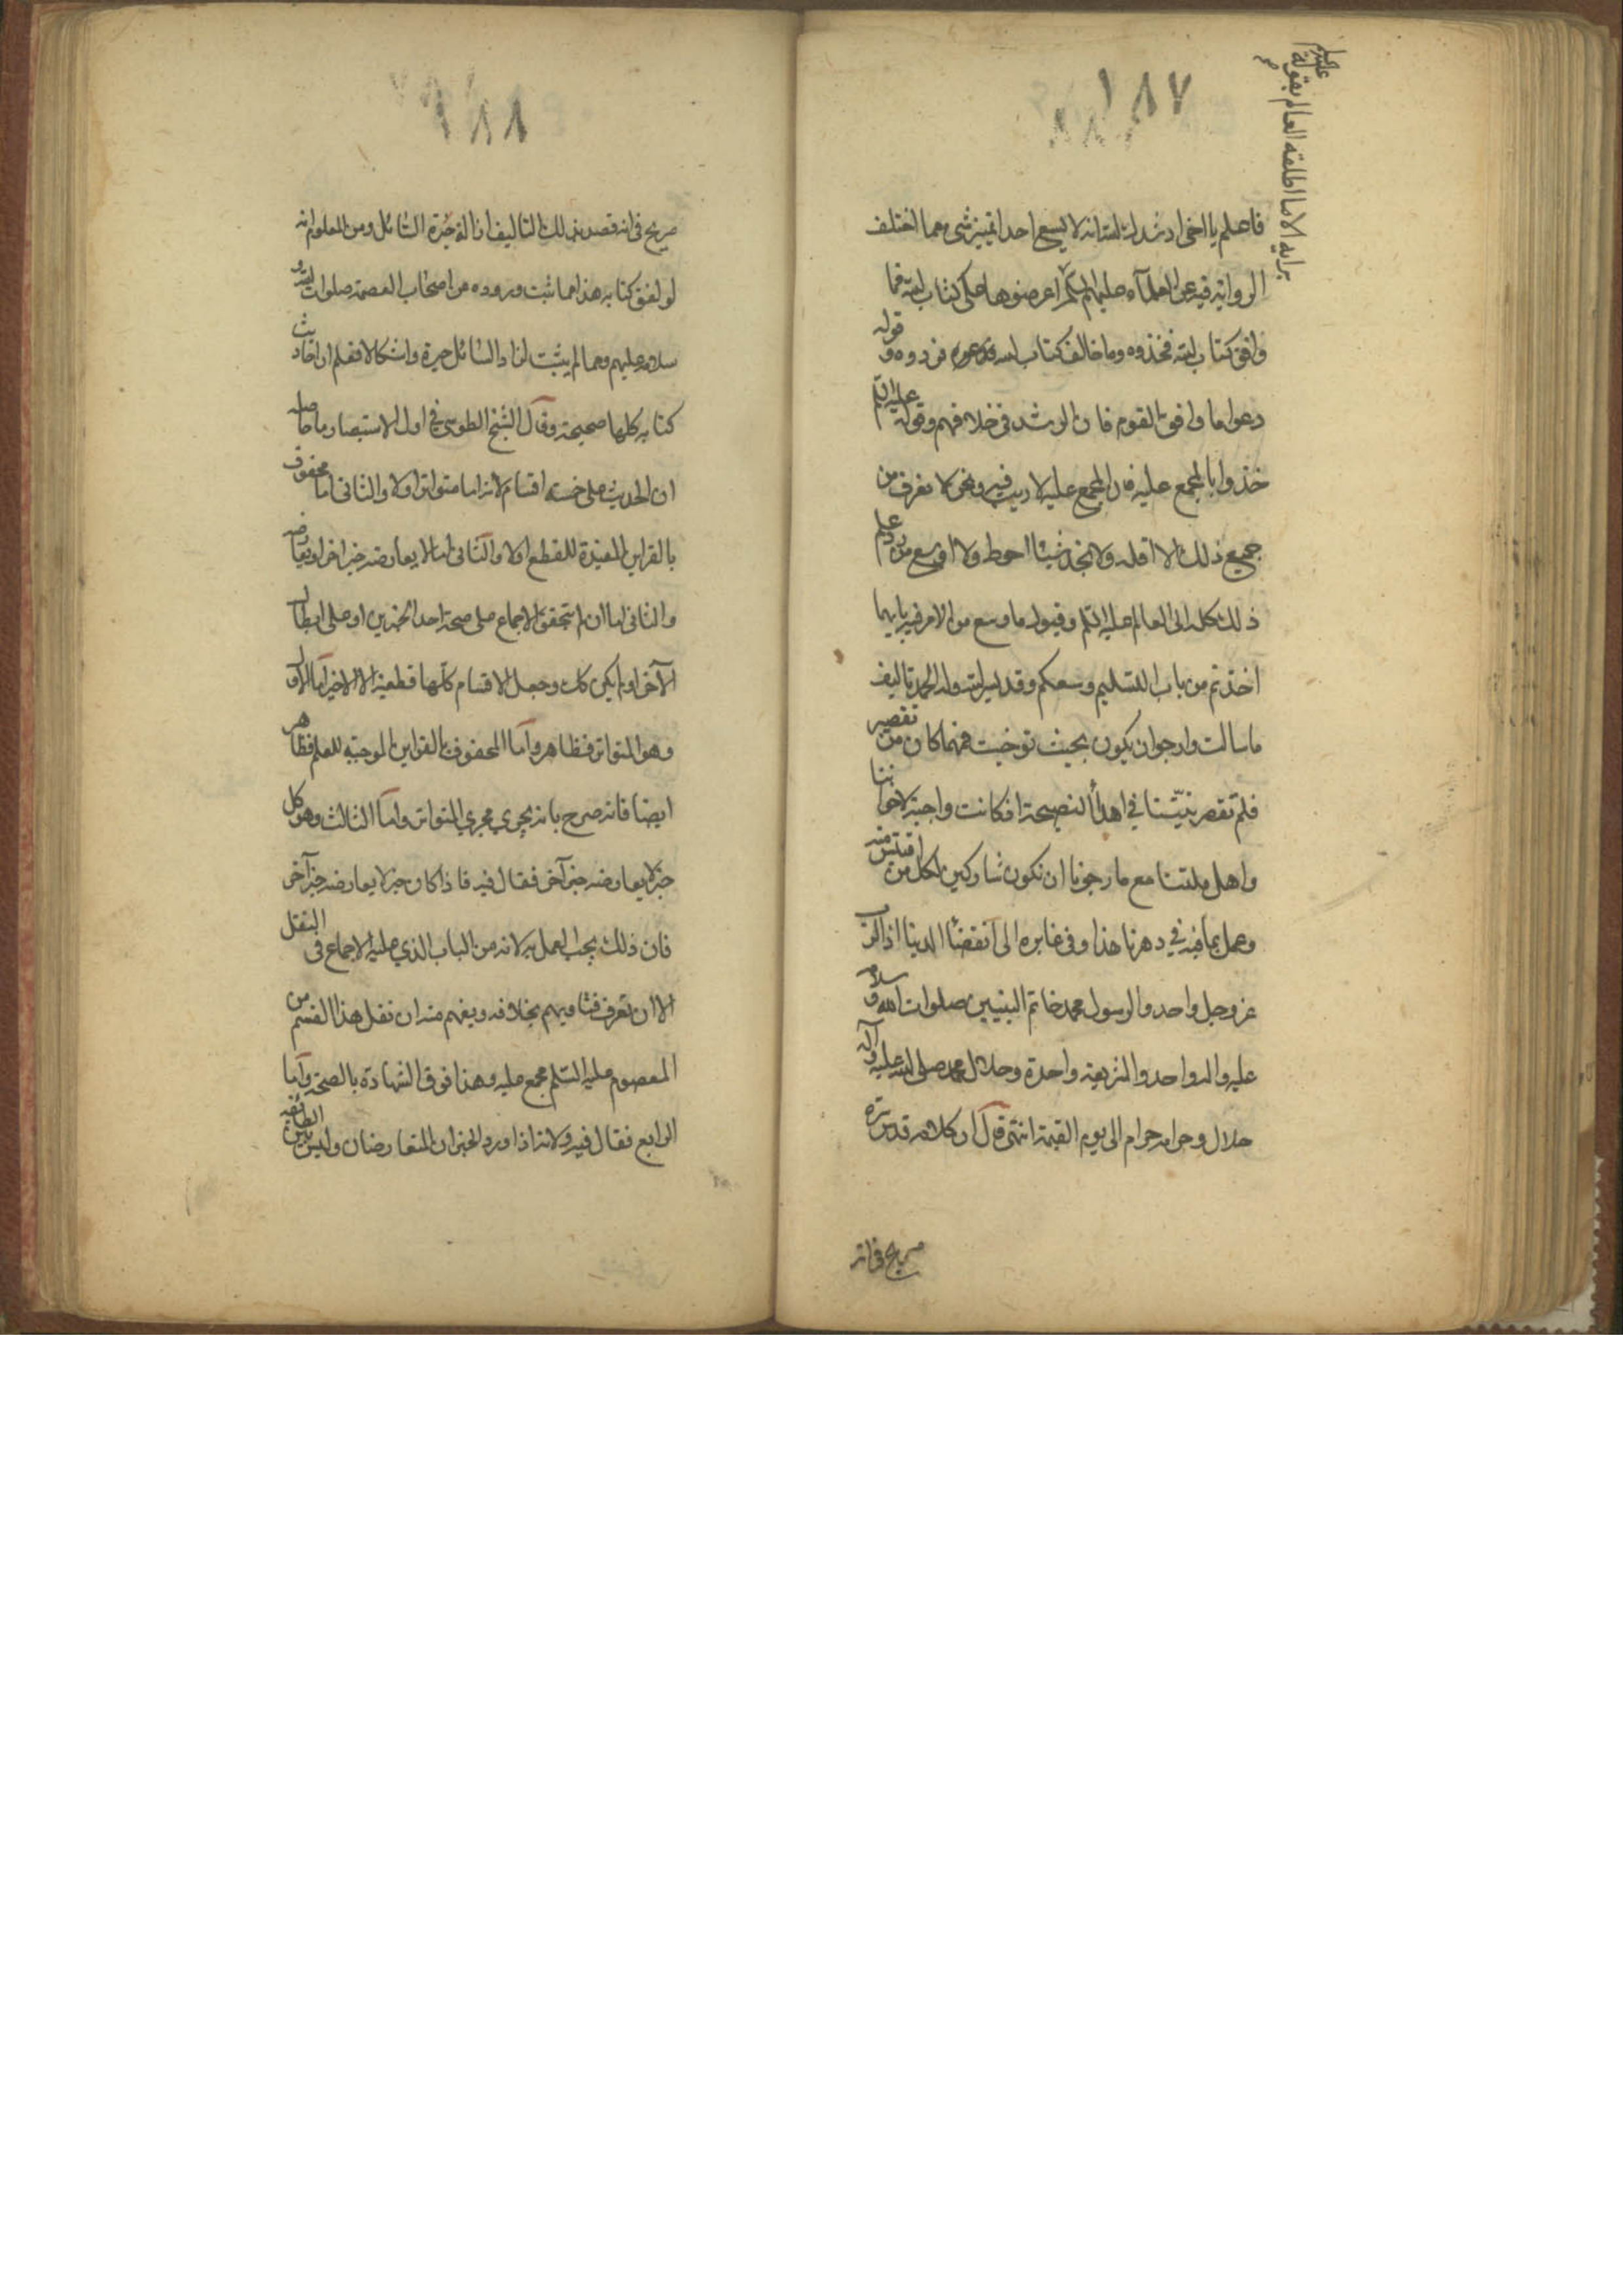 ١٨٧
برايه الا ما اطلقه العالم بقوله عليه السلم
فاعلم يا اخي ارشدك الله انه لا يسع احدا تمييز شيء مما اختلف
الرواية فيه عن العلماء عليهم السلم اعرضوها على كتاب الله فما
وافق كتاب الله فخذوه وما خالف كتاب الله فردوه وقوله
دعوا ما وافق القوم فان الرشد في خلافهم وقوله عليه السلم
خذوا بالمجمع عليه فان المجمع عليه لا ريب فيه ونحن لا نعرف من
جميع ذلك الا اقله ولا نجد شيئا احوط ولا اوسع من رد علم
ذلك كله الى العالم عليه السلم وقبول ما وسع من الامر فيه بايما
اخذتم من باب التسليم وسعكم وقد يسر الله وله الحمد تاليف
ما سالت وارجو ان يكون بحيث توخيت فمهما كان من تقصير
فلم تقصر نيتنا في اهداء النصيحة اذ كانت واجبة لاخواننا
واهل ملتنا مع ما رجونا ان نكون مشاركين لكل من اقتبس منه
وعمل بما فيه في دهرنا هذا وفي غابره الى انقضاء الدنيا اذ الرب
عز وجل واحد والرسول محمد خاتم النبيين صلوات الله وسلامه
عليه واله واحد والشريعة واحدة وحلال محمد صلى الله عليه وآله
حلال وحرامه حرام الى يوم القيمة انتهى قال ان كلامه قدس سره
صريح في انه
١٨٨
صريح في انه قصد بذلك التاليف ازالة حيرة السائل ومن المعلوم انه
لو لفق كتابه هذا مما ثبت وروده من اصحاب العصمة صلوات الله و
سلامه عليهم ومما لم يثبت لزاد السائل حيرة واشكالا فعلم ان احاديث
كتابه كلها صحيحة وقال الشيخ الطوسي في اول الاستبصار ما حاصله
ان الحديث على خمسة اقسام لانه اما متواتر اولا والثاني اما محفوف
بالقراين المفيدة للقطع اولا والثاني اما لا يعارضه خبر اخر او يعارضه
والثاني اما ان يتحقق الاجماع على صحة احد الخبرين او على ابطال
الآخر او لم يكن كك وجعل الاقسام كلها قطعية الا الاخير اما الاول
وهو المتواتر فظاهر واما المحفوف بالقراين الموجبة للعلم فظاهر
ايضا فانه صرح بانه يجري مجرى المتواتر واما الثالث وهو كل
خبر لا يعارضه خبر آخر فقال فيه فاذا كان خبر لا يعارضه خبر آخر
فان ذلك يجب العمل به لانه من الباب الذي عليه الاجماع في النقل
الا ان تعرف فتاويهم بخلافه ويفهم منه ان نقل هذا القسم من
المعصوم عليه السلم مجمع عليه وهذا فوق الشهادة بالصحة واما
الرابع فقال فيه ولانه اذا ورد الخبران المتعارضان وليس بين الطائفة